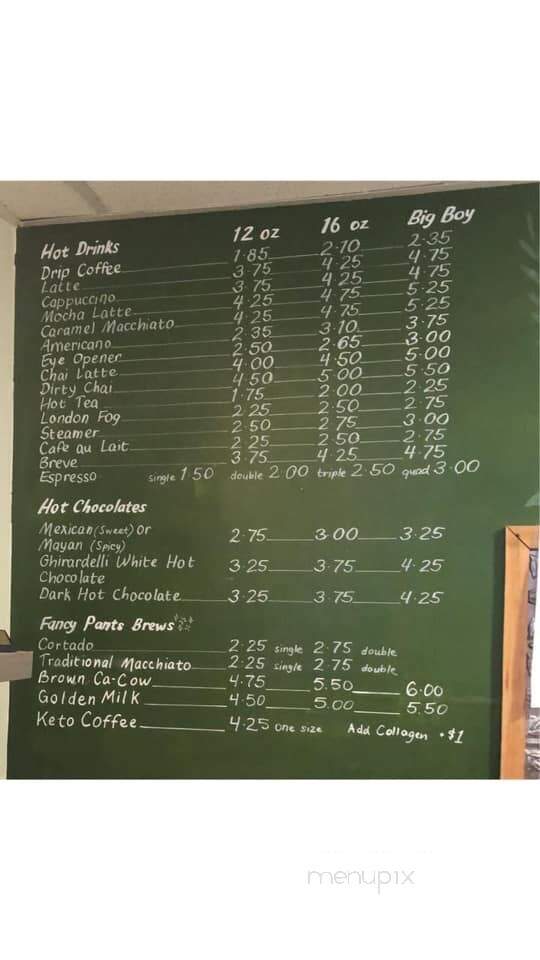 Hot Drinks 12 oz 16 oz Big Boy
Drip Coffee 1.85 2.10 2.35
Latte 3.75 4.25 4.75
Cappuccino 3.75 4.25 4.75
Mocha Latte 4.25 4.75 5.25
Caramel Macchiato 4.25 4.75 5.25
Americano 2.35 3.10 3.75
Eye Opener 2.50 2.65 3.00
Chai Latte 4.00 4.50 5.00
Dirty Chai 4.50 5.00 5.50
Hot Tea 1.75 2.00 2.25
London Fog 2.25 2.50 2.75
Steamer 2.50 2.75 3.00
Cafe au Lait 2.25 2.50 2.75
Breve 3.75 4.25 4.75
Espresso single 1.50 double 2.00 triple 2.50 quad 3.00
Hot Chocolates
Mexican (Sweet) or
Mayan (Spicy) 2.75 3.00 3.25
Ghirardelli White Hot 3.25 3.75 4.25
Chocolate
Dark Hot Chocolate 3.25 3.75 4.25
Fancy Pants Brews
Cortado 2.25 single 2.75 double
Traditional Macchiato 2.25 single 2.75 double
Brown Ca-Cow 4.75 5.50 6.00
Golden Milk 4.50 5.00 5.50
Keto Coffee 4.25 one size Add Collagen • $1
menupix